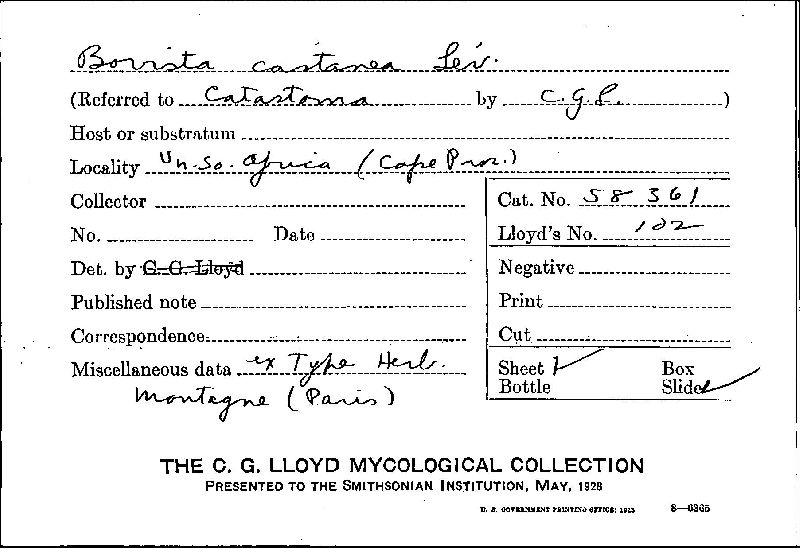 Bovista castanea Lév.
(Referred to Catastoma by C.G.L.)
Host or substratum
Locality Un. So. Africa (Cape Prov.)
Collector
No. Date
Det. by C. G. Lloyd
Published note
Correspondence
Miscellaneous data ex Type Herb.
Montagne (Paris)
Cat. No. 58361
Lloyd's No. 102
Negative
Print
Cut
Sheet Box
Bottle Slide
THE C. G. LLOYD MYCOLOGICAL COLLECTION
PRESENTED TO THE SMITHSONIAN INSTITUTION, MAY, 1928
U. S. GOVERNMENT PRINTING OFFICE: